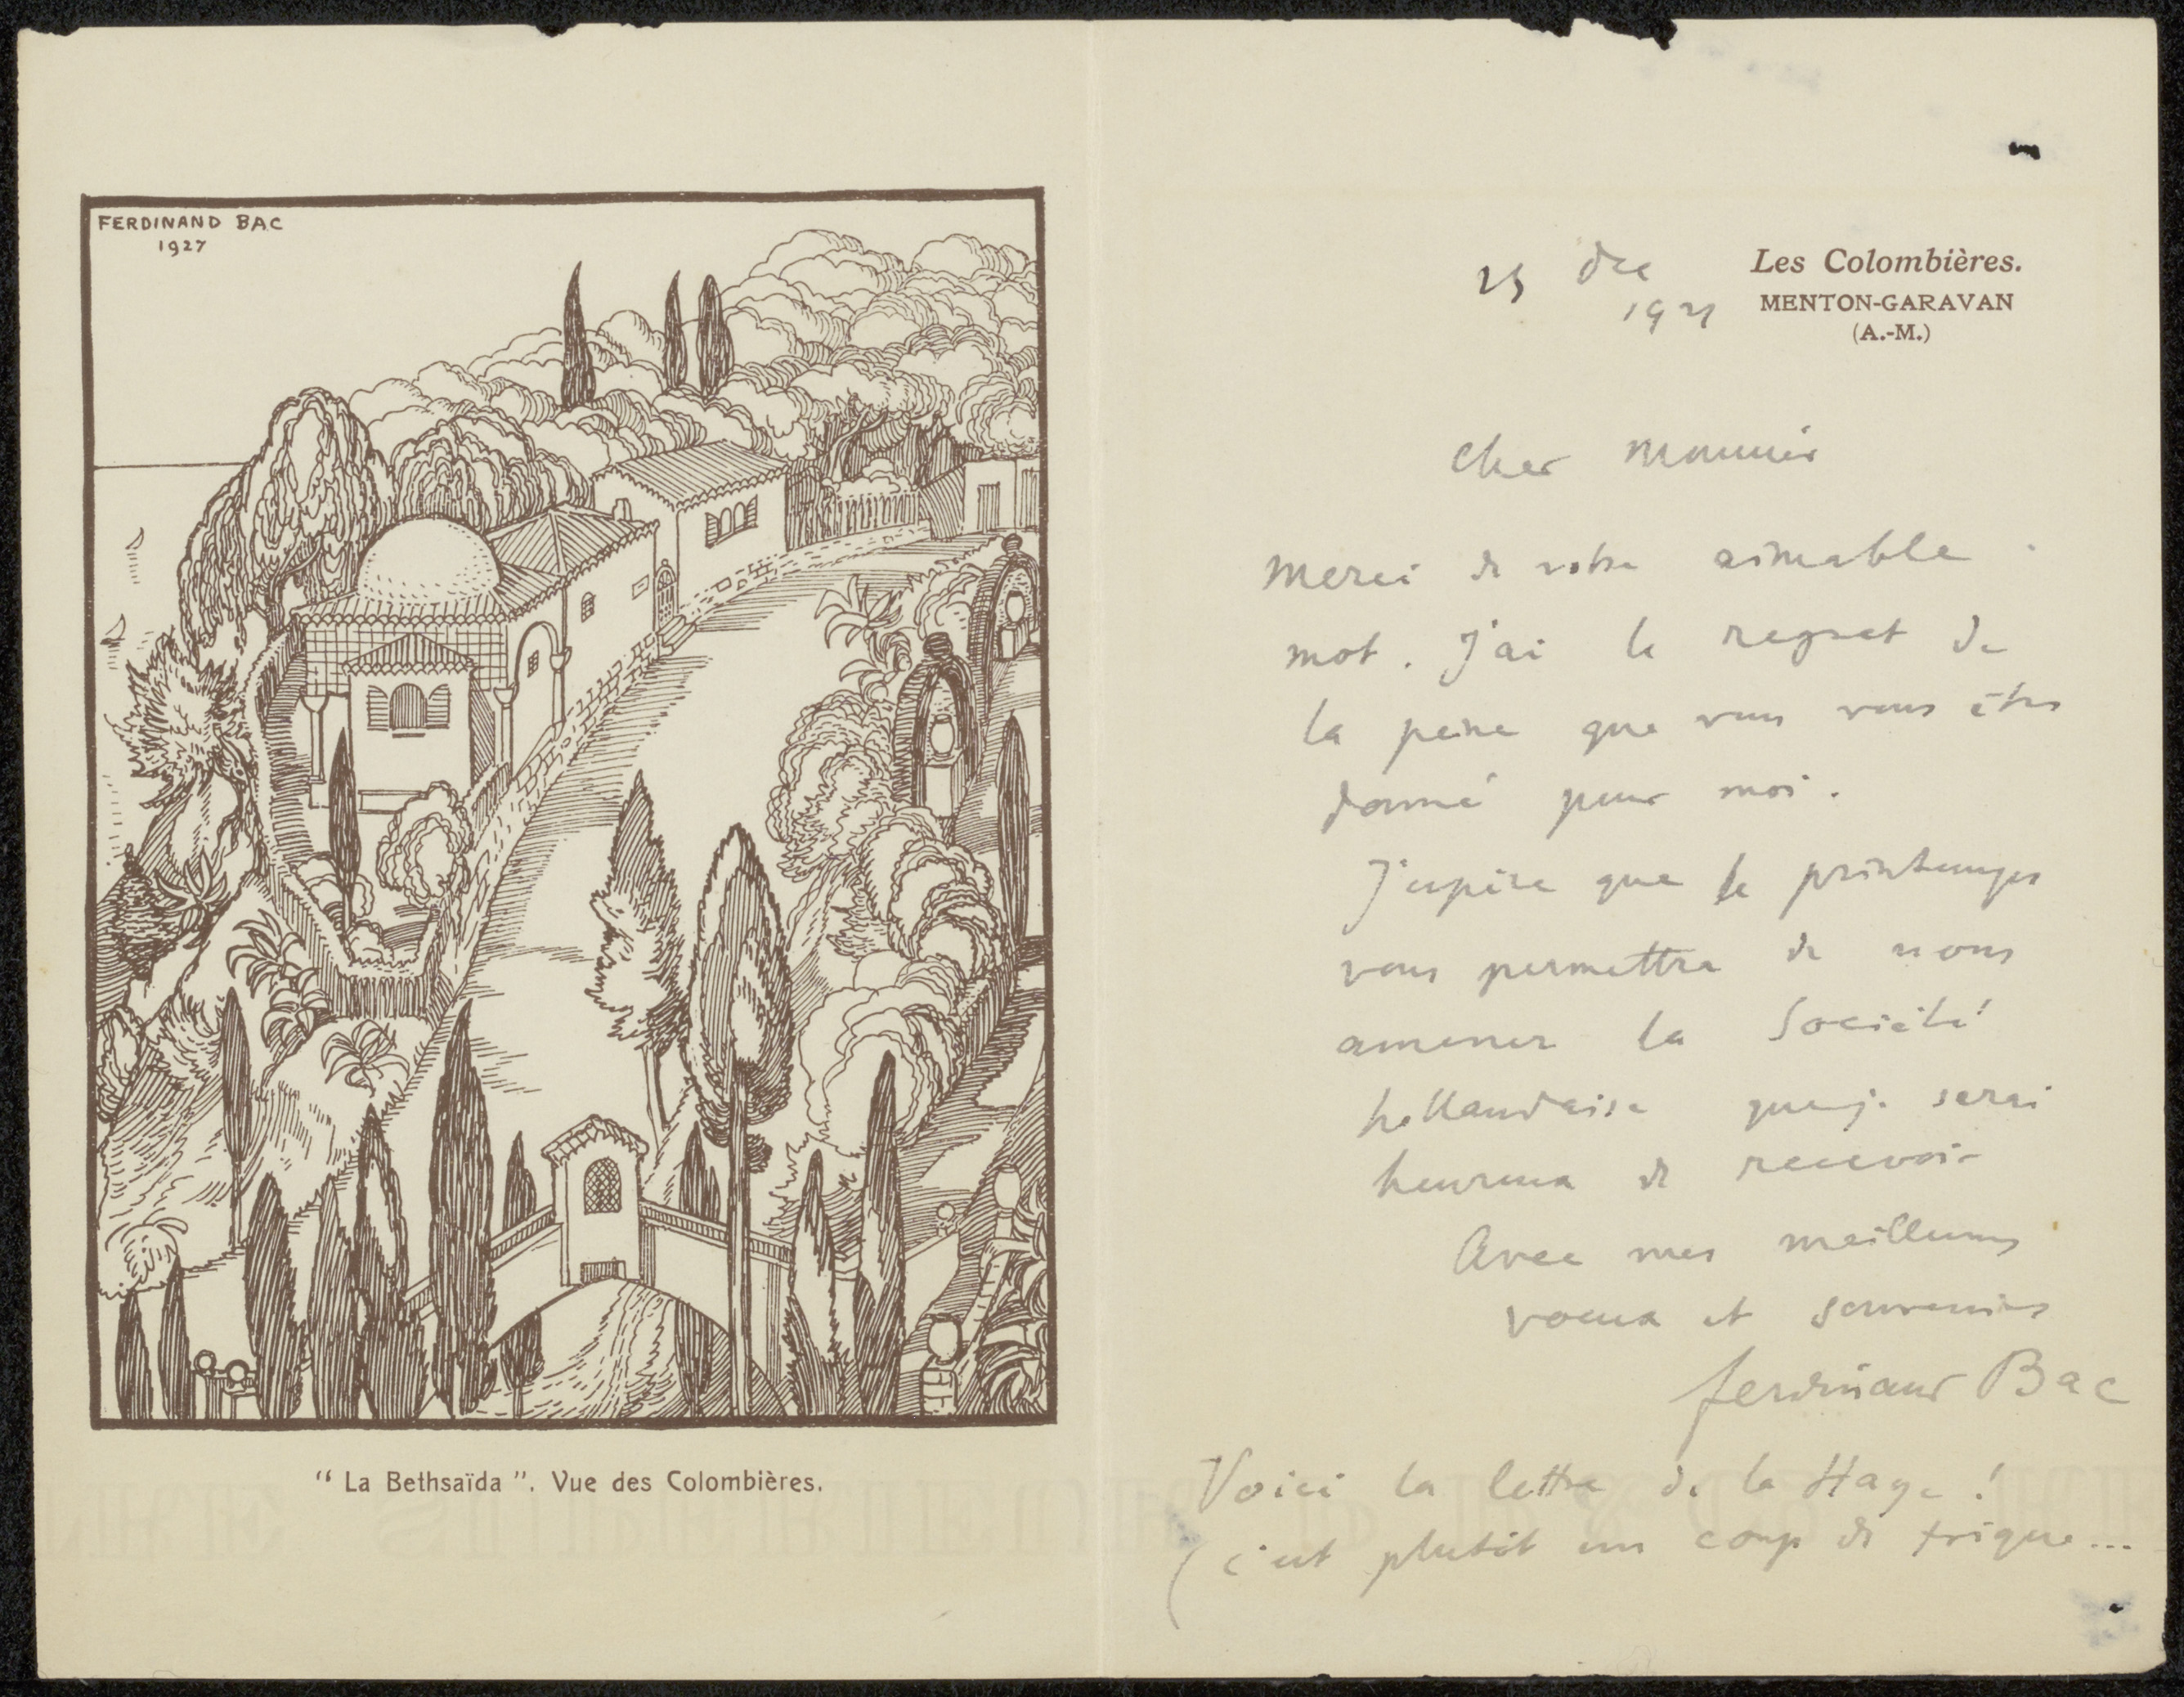 FERDINAND BAC
1927
" La Bethsaïda ". Vue des Colombières.
Les Colombières.
MENTON-GARAVAN
(A.-M.)
dec
Cher Monsieur
Merci de votre aimable
mot. J'ai le regret de
la peine que vous vous êtes
donné pour moi.
J'espère que le printemps
vous permettra de nous
amener la Société
hollandaise que je serai
heureux de recevoir
Avec mes meilleurs
voeux et souvenirs
Ferdinand Bac
Voici la lettre de la Haye !
(c'est plutôt un coup de trique...